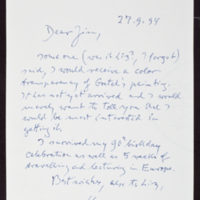 27.9.94
Dear Jim,
someone (was it Liz?, I forgot)
said, I would receive a color
transparency of Gertel's painting.
It has not yet arrived and I would
merely want to tell you that I
would be most interested in
getting it.
I survived my 90th birthday
celebration as well as 5 weeks of
travelling and lecturing in Europe.
Best wishes, also to Liz,